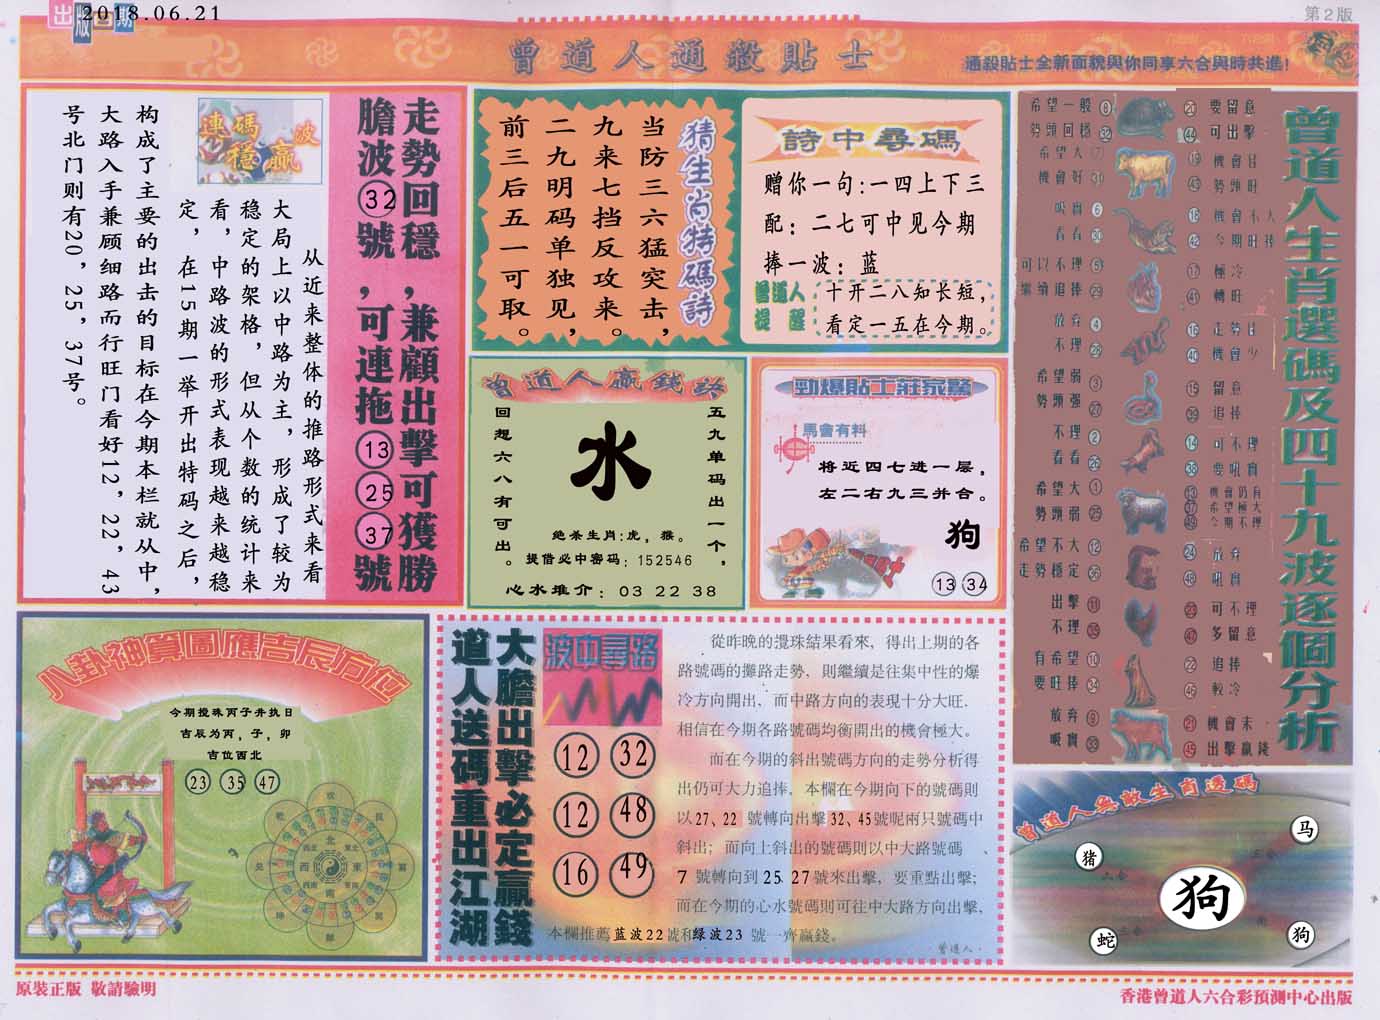 出版日期
2018.06.21
第2版
曾道人通殺貼士
通殺貼士全新面貌與你同享六合與時共進!
走勢回穩,兼顧出擊可獲勝
膽波32號,可連拖13 25 37號
連碼穩赢波
从近来整体的推路形式来看
大局上以中路为主,形成了较为
稳定的架格,但从个数的统计来
看,中路波的形式表现越来越稳
定,在15期一举开出特码之后,
构成了主要的出击的目标在今期本栏就从中,
大路入手兼顾细路而行旺门看好12,22,43
号北门则有20,25,37号。
猜生肖特碼詩
当防三六猛突击,
九来七挡反攻来。
二九明码单独见,
前三后五一可取。
詩中尋碼
赠你一句:一四上下三
配:二七可中见今期
捧一波:蓝
曾道人提醒
十开二八知长短,
看定一五在今期。
曾道人贏錢路
五九单码出一个,
回想六八有可出。
水
绝杀生肖:虎,猴。
提借必中密码:152546
心水推介:03 22 38
勁爆貼士莊家驚
馬會有料
将近四七进一层,
左二右九三并合。
狗
13 34
曾道人生肖選碼及四十九波逐個分析
希望一般 8
勢頭回穩 32
20 要留意
44 可出擊
希望大
機會好 31
19 機會佳
43 勢頭旺
吸實 6
看看 30
18 機會不大
42 今期旺捧
可以不理 5
繼續追捧 29
17 極冷
41 轉旺
放弃 4
不理 28
16 走勢佳
40 機會少
希望弱 3
勢頭强 27
15 留意
39 追捧
不理 2
看看 26
14 可不理
38 要吼實
希望大 1
勢頭弱 25
13 機會仍有
37 希望極大
49 今期不理
希望不大 12
走勢穩定 36
24 放弃
48 吼實
出擊 11
不理 35
23 可不理
47 多留意
有希望 10
要旺捧 34
22 追捧
46 較冷
放弃 9
吸實 33
21 機會未
45 出擊贏錢
八卦神算圖應吉辰方位
今期搅珠丙子井执日
吉辰为丙,子,卯
吉位西北
23 35 47
北
西 東
南
大膽出擊必定贏錢
道人送碼重出江湖
波中尋路
12 32
12 48
16 49
從昨晚的攪珠結果看來，得出上期的各
路號碼的攤路走勢，則繼續是往集中性的爆
冷方向開出，而中路方向的表現十分大旺.
相信在今期各路號碼均衡開出的機會極大。
而在今期的斜出號碼方向的走勢分析得
出仍可大力追捧，本欄在今期向下的號碼則
以27、22 號轉向出擊32、45號呢兩只號碼中
斜出；而向上斜出的號碼則以中大路號碼、
7 號轉向到25 27號來出擊，要重點出擊；
而在今期的心水號碼則可往中大路方向出擊，
本欄推薦蓝波22號和绿波23 號一齊贏錢。
曾道人·
曾道人無敵生肖透碼
猪
马
狗
蛇
狗
原裝正版 敬請驗明
香港曾道人六合彩預測中心出版